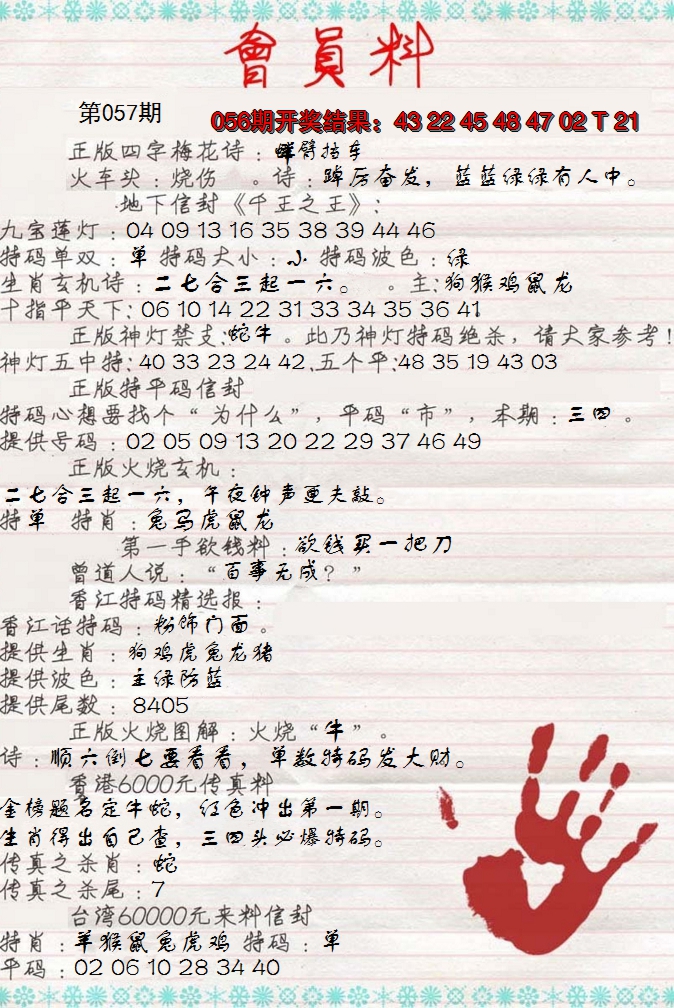 會員料
第057期
056期开奖结果：43 22 45 48 47 02 T 21
正版四字梅花诗：螳臂挡车
火车头：烧伤 。诗：踔厉奋发，蓝蓝绿绿有人中。
地下信封《千王之王》：
九宝莲灯：04 09 13 16 35 38 39 44 46
特码单双：单 特码大小：小 特码波色：绿
生肖玄机诗：二七合三起一六。 。主：狗猴鸡鼠龙
十指平天下：06 10 14 22 31 33 34 35 36 41
正版神灯禁支：蛇牛。此乃神灯特码绝杀，请大家参考！
神灯五中特：40 33 23 24 42.五个平：48 35 19 43 03
正版特平码信封
特码心想要找个“为什么”，平码“市”，本期：三四。
提供号码：02 05 09 13 20 22 29 37 46 49
正版火烧玄机：
二七合三起一六，午夜钟声更夫敲。
特单 特肖：兔马虎鼠龙
第一手欲钱料：欲钱买一把刀
曾道人说：“百事无成？”
香江特码精选报：
香江话特码：粉饰门面。
提供生肖：狗鸡虎兔龙猪
提供波色：主绿防蓝
提供尾数：8405
正版火烧图解：火烧“牛”。
诗：顺六倒七要看看，单数特码发大财。
香港6000元传真料
金榜题名定牛蛇，红色冲出第一期。
生肖得出自己查，三四头必爆特码。
传真之杀肖：蛇
传真之杀尾：7
台湾60000元来料信封
特肖：羊猴鼠兔虎鸡 特码：单
平码：02 06 10 28 34 40